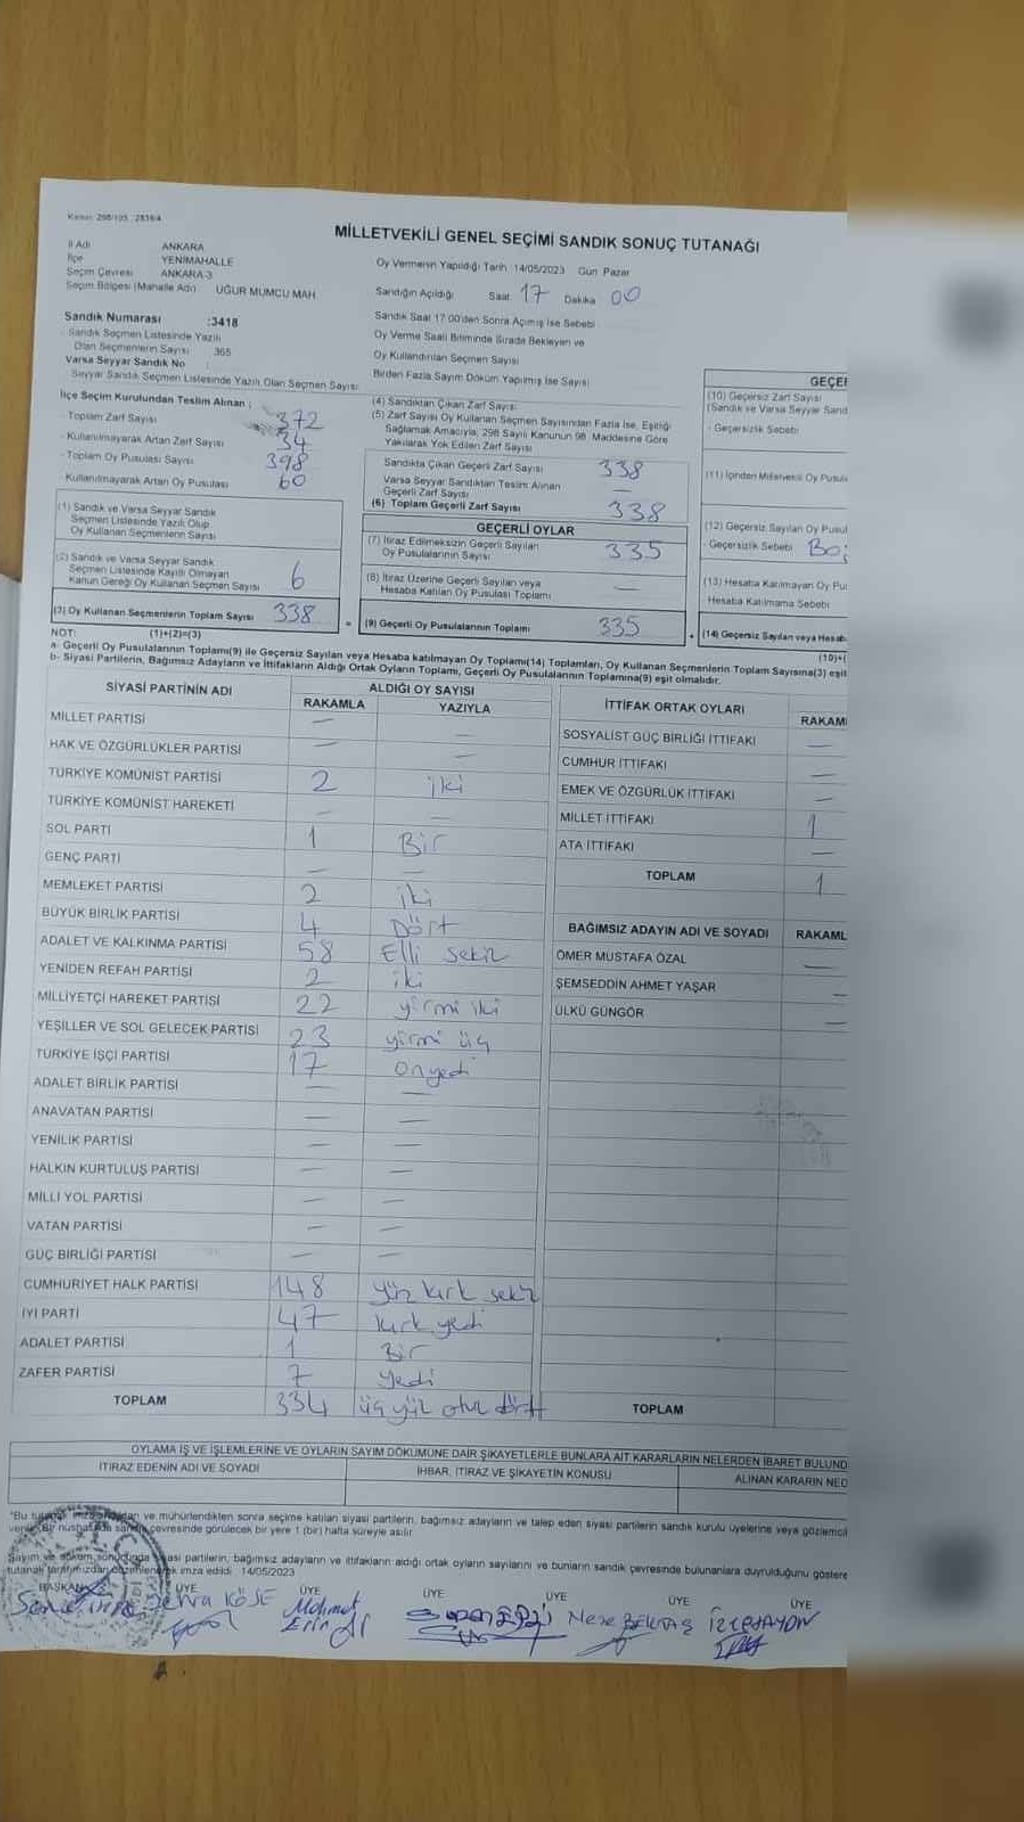 Kanun: 298/105, 2839/4
MİLLETVEKİLİ GENEL SEÇİMİ SANDIK SONUÇ TUTANAĞI
İl Adı ANKARA
İlçe YENİMAHALLE
Seçim Çevresi ANKARA-3
Seçim Bölgesi (Mahalle Adı) UĞUR MUMCU MAH.
Oy Vermenin Yapıldığı Tarih 14/05/2023 Gün Pazar
Sandığın Açıldığı Saat 17 Dakika 00
Sandık Numarası :3418
- Sandık Seçmen Listesinde Yazılı
Olan Seçmenlerin Sayısı 365
Varsa Seyyar Sandık No :
- Seyyar Sandık Seçmen Listesinde Yazılı Olan Seçmen Sayısı
Sandık Saat 17.00'den Sonra Açılmış İse Sebebi
Oy Verme Saati Bitiminde Sırada Bekleyen ve
Oy Kullandırılan Seçmen Sayısı
Birden Fazla Sayım Döküm Yapılmış İse Sayısı
İlçe Seçim Kurulundan Teslim Alınan ;
- Toplam Zarf Sayısı 372
- Kullanılmayarak Artan Zarf Sayısı 34
- Toplam Oy Pusulası Sayısı 398
- Kullanılmayarak Artan Oy Pusulası 60
(1) Sandık ve Varsa Seyyar Sandık
Seçmen Listesinde Yazılı Olup
Oy Kullanan Seçmenlerin Sayısı
(2) Sandık ve Varsa Seyyar Sandık
Seçmen Listesinde Kayıtlı Olmayan
Kanun Gereği Oy Kullanan Seçmen Sayısı 6
(3) Oy Kullanan Seçmenlerin Toplam Sayısı 338
(4) Sandıktan Çıkan Zarf Sayısı
(5) Zarf Sayısı Oy Kullanan Seçmen Sayısından Fazla İse, Eşitliği
Sağlamak Amacıyla, 298 Sayılı Kanunun 98. Maddesine Göre
Yakılarak Yok Edilen Zarf Sayısı
Sandıkta Çıkan Geçerli Zarf Sayısı 338
Varsa Seyyar Sandıktan Teslim Alınan
Geçerli Zarf Sayısı —
(6) Toplam Geçerli Zarf Sayısı 338
GEÇERLİ OYLAR
(7) İtiraz Edilmeksizin Geçerli Sayılan
Oy Pusulalarının Sayısı 335
(8) İtiraz Üzerine Geçerli Sayılan veya
Hesaba Katılan Oy Pusulası Toplamı —
= (9) Geçerli Oy Pusulalarının Toplamı 335
GEÇE
(10) Geçersiz Zarf Sayısı
(Sandık ve Varsa Seyyar Sand
- Geçersizlik Sebebi
(11) İçinden Milletvekili Oy Pusula
(12) Geçersiz Sayılan Oy Pusul
- Geçersizlik Sebebi
(13) Hesaba Katılmayan Oy Pu
Hesaba Katılmama Sebebi
+ (14) Geçersiz Sayılan veya Hesab
NOT: (1)+(2)=(3) (10)+(
a- Geçerli Oy Pusulalarının Toplamı(9) ile Geçersiz Sayılan veya Hesaba katılmayan Oy Toplamı(14) Toplamları, Oy Kullanan Seçmenlerin Toplam Sayısına(3) eşit
b- Siyasi Partilerin, Bağımsız Adayların ve İttifakların Aldığı Ortak Oyların Toplamı, Geçerli Oy Pusulalarının Toplamına(9) eşit olmalıdır.
SİYASİ PARTİNİN ADI ALDIĞI OY SAYISI
RAKAMLA YAZIYLA
MİLLET PARTİSİ — —
HAK VE ÖZGÜRLÜKLER PARTİSİ — —
TÜRKİYE KOMÜNİST PARTİSİ 2 iki
TÜRKİYE KOMÜNİST HAREKETİ — —
SOL PARTİ 1 Bir
GENÇ PARTİ — —
MEMLEKET PARTİSİ 2 iki
BÜYÜK BİRLİK PARTİSİ 4 Dört
ADALET VE KALKINMA PARTİSİ 58 Elli sekiz
YENİDEN REFAH PARTİSİ 2 iki
MİLLİYETÇİ HAREKET PARTİSİ 22 yirmi iki
YEŞİLLER VE SOL GELECEK PARTİSİ 23 yirmi üç
TÜRKİYE İŞÇİ PARTİSİ 17 onyedi
ADALET BİRLİK PARTİSİ — —
ANAVATAN PARTİSİ — —
YENİLİK PARTİSİ — —
HALKIN KURTULUŞ PARTİSİ — —
MİLLİ YOL PARTİSİ — —
VATAN PARTİSİ — —
GÜÇ BİRLİĞİ PARTİSİ — —
CUMHURİYET HALK PARTİSİ 148 yüz kırk sekiz
İYİ PARTİ 47 kırk yedi
ADALET PARTİSİ 1 Bir
ZAFER PARTİSİ 7 yedi
TOPLAM 334 üç yüz otuz dört
İTTİFAK ORTAK OYLARI RAKAM
SOSYALİST GÜÇ BİRLİĞİ İTTİFAKI —
CUMHUR İTTİFAKI —
EMEK VE ÖZGÜRLÜK İTTİFAKI —
MİLLET İTTİFAKI 1
ATA İTTİFAKI —
TOPLAM 1
BAĞIMSIZ ADAYIN ADI VE SOYADI RAKAML
ÖMER MUSTAFA ÖZAL —
ŞEMSEDDİN AHMET YAŞAR —
ÜLKÜ GÜNGÖR —
TOPLAM
OYLAMA İŞ VE İŞLEMLERİNE VE OYLARIN SAYIM DÖKÜMÜNE DAİR ŞİKAYETLERLE BUNLARA AİT KARARLARIN NELERDEN İBARET BULUND
İTİRAZ EDENİN ADI VE SOYADI İHBAR, İTİRAZ VE ŞİKAYETİN KONUSU ALINAN KARARIN NED
"Bu ve mühürlendikten sonra seçime katılan siyasi partilerin, bağımsız adayların ve talep eden siyasi partilerin sandık kurulu üyelerine veya gözlemcil
çevresinde görülecek bir yere 1 (bir) hafta süreyle asılır.
Sayım ve döküm sonucunda siyasi partilerin, bağımsız adayların ve ittifakların aldığı ortak oyların sayılarını ve bunların sandık çevresinde bulunanlara duyrulduğunu göstere
tutanak tarafımızdan düzenlenerek imza edildi. 14/05/2023
BAŞKAN ÜYE ÜYE ÜYE ÜYE ÜYE ÜYE
KÖSE Mehmet